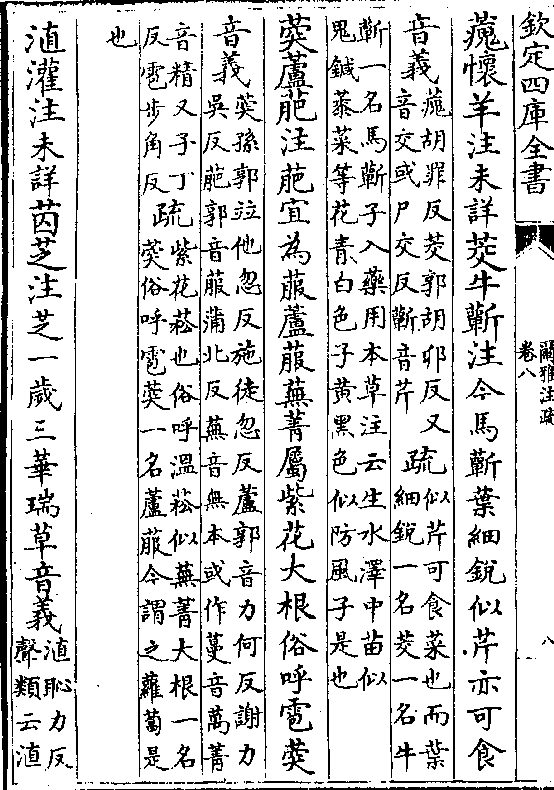 欽定四庫全書
爾雅注疏
卷八
八
蘾懷羊注未詳茭牛蘄注今馬蘄葉細銳似芹亦可食
音義
蘾胡罪反茭郭胡卯反又
音交或户交反蘄音芹
疏
似芹可食菜也而葉
細銳一名茭一名牛
蘄一名馬蘄子入藥用本草注云生水澤中苗似
鬼鍼菾菜等花青白色子黄黒色似防風子是也
葖蘆萉注萉宜為菔蘆菔蕪菁屬紫花大根俗呼雹葖
音義
葖孫郭竝他忽反施徒忽反蘆郭音力何反謝力
吳反萉郭音菔蒲北反蕪音無本或作蔓音萬菁
音精又子丁
反雹步角反
疏
紫花菘也俗呼温菘似蕪菁大根一名
葖俗呼雹葖一名蘆菔今謂之蘿蔔是
也
淔灌注未詳茵芝注芝一歲三華瑞草音義
淔恥力反
聲類云淔